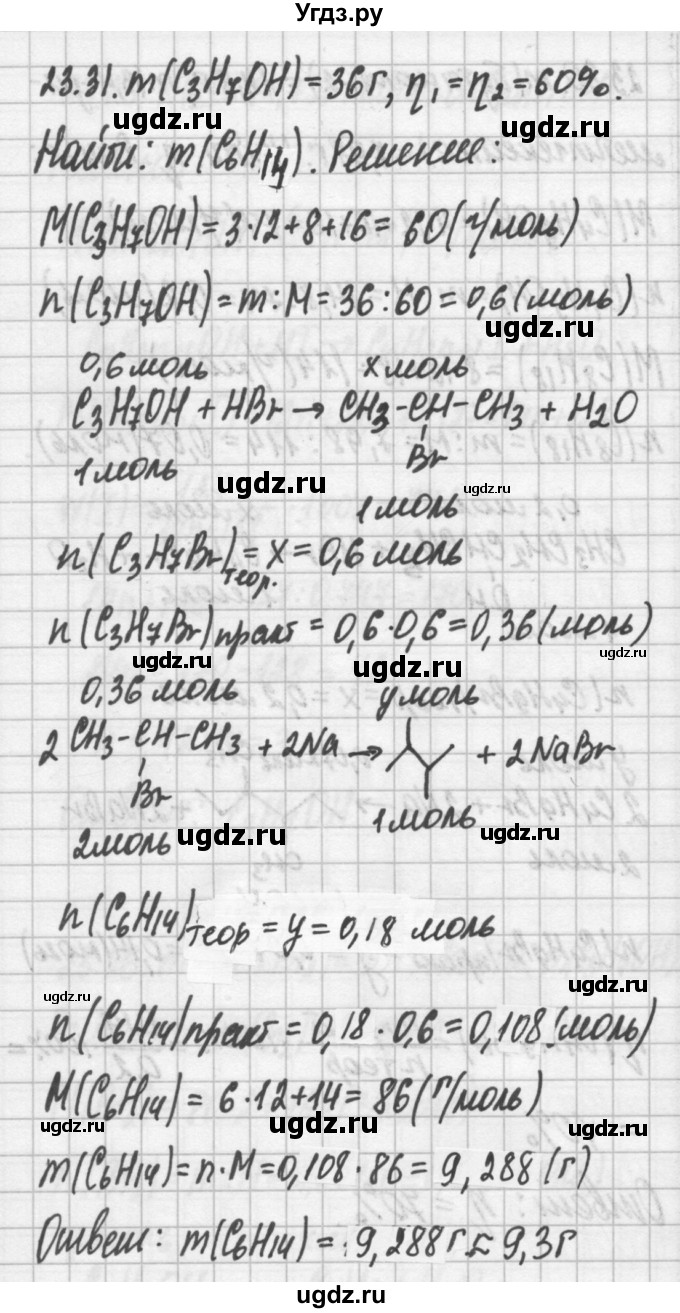 Угдз.ру
23.31. m(C₃H₇OH) = 36г, η₁ = η₂ = 60%.
ugdz.ru ugdz.ru
Найти: m(C₆H₁₄). Решение:
M(C₃H₇OH) = 3·12+8+16 = 60(г/моль)
n(C₃H₇OH) = m:M = 36:60 = 0,6(моль)
ugdz.ru
0,6 моль x моль
C₃H₇OH + HBr → CH₃-CH-CH₃ + H₂O
Br
1 моль
ugdz.ru ugdz.ru
1 моль
n(C₃H₇Br)теор. = x = 0,6 моль
n(C₃H₇Br)практ = 0,6·0,6 = 0,36(моль)
ugdz.ru ugdz.ru ugdz.ru
0,36 моль y моль
2 CH₃-CH-CH₃ + 2Na → + 2NaBr
Br
2моль 1 моль
ugdz.ru ugdz.ru
n(C₆H₁₄)теор = y = 0,18 моль
ugdz.ru
ugdz.ru
n(C₆H₁₄)практ = 0,18·0,6 = 0,108(моль)
M(C₆H₁₄) = 6·12+14 = 86(г/моль)
ugdz.ru ugdz.ru ugdz.ru
m(C₆H₁₄) = n·M = 0,108·86 = 9,288(г)
Ответ: m(C₆H₁₄) = 9,288г ≈ 9,3г
ugdz.ru